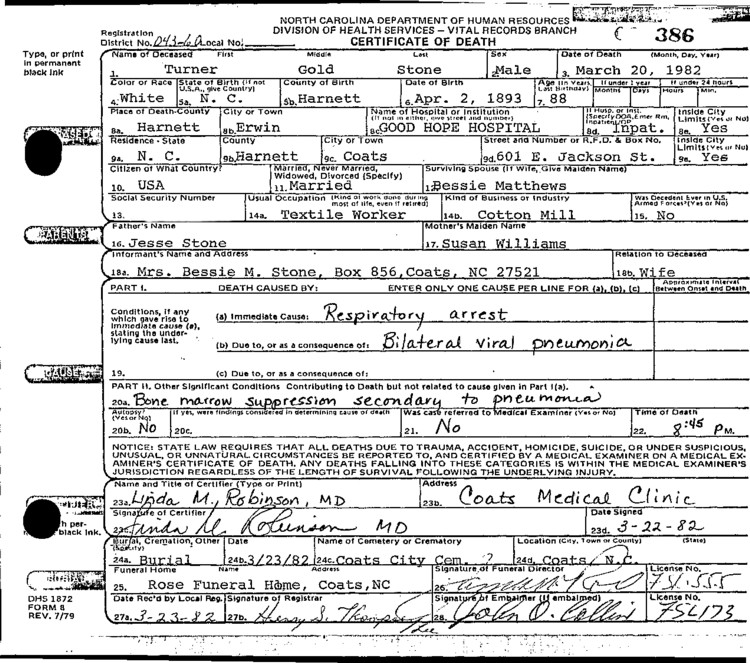 NORTH CAROLINA DEPARTMENT OF HUMAN RESOURCES
DIVISION OF HEALTH SERVICES – VITAL RECORDS BRANCH
CERTIFICATE OF DEATH
386
Registration
District No. 043-60 Local No.
Type, or print
in permanent
black ink
Name of Deceased First Middle Last Sex Date of Death (Month, Day, Year)
1. Turner Gold Stone 2. Male 3. March 20, 1982
Color or Race State of Birth (If not U.S.A., give Country) County of Birth Date of Birth Age (In Years Last Birthday) If under 1 year Months Days If under 24 hours Hours Min.
4. White 5a. N. C. 5b. Harnett 6. Apr. 2, 1893 7. 88
Place of Death-County City or Town Name of Hospital or Institution (If not in either, give street and number) If Hosp. or Inst. (Specify DOA, Emer Rm, Inpatient, OP Inside City Limits (Yes or No)
8a. Harnett 8b. Erwin 8c. GOOD HOPE HOSPITAL 8d. Inpat. 8e. Yes
Residence - State County City or Town Street and Number or R.F.D. & Box No. Inside City Limits (Yes or No)
9a. N. C. 9b. Harnett 9c. Coats 9d. 601 E. Jackson St. 9e. Yes
Citizen of What Country? Married, Never Married, Widowed, Divorced (Specify) Surviving Spouse (If Wife, Give Maiden Name)
10. USA 11. Married 12. Bessie Matthews
Social Security Number Usual Occupation (Kind of work done during most of life, even if retired) Kind of Business or Industry Was Decedent Ever in U.S. Armed Forces? (Yes or No)
13. 14a. Textile Worker 14b. Cotton Mill 15. No
PARENTS
Father's Name Mother's Maiden Name
16. Jesse Stone 17. Susan Williams
Informant's Name and Address Relation to Deceased
18a. Mrs. Bessie M. Stone, Box 856, Coats, NC 27521 18b. Wife
PART I. DEATH CAUSED BY: ENTER ONLY ONE CAUSE PER LINE FOR (a), (b), (c) Approximate Interval Between Onset and Death
Conditions, if any
which gave rise to
immediate cause (a),
stating the under-
lying cause last.
(a) Immediate Cause: Respiratory arrest
(b) Due to, or as a consequence of: Bilateral viral pneumonia
CAUSE
19. (c) Due to, or as a consequence of:
PART II. Other Significant Conditions Contributing to Death but not related to cause given in Part I(a).
20a. Bone marrow suppression secondary to pneumonia
Autopsy? (Yes or No) If yes, were findings considered in determining cause of death Was case referred to Medical Examiner (Yes or No) Time of Death
20b. No 20c. 21. No 22. 8:45 P M.
NOTICE: STATE LAW REQUIRES THAT ALL DEATHS DUE TO TRAUMA, ACCIDENT, HOMICIDE, SUICIDE, OR UNDER SUSPICIOUS,
UNUSUAL, OR UNNATURAL CIRCUMSTANCES BE REPORTED TO, AND CERTIFIED BY A MEDICAL EXAMINER ON A MEDICAL EX-
AMINER'S CERTIFICATE OF DEATH. ANY DEATHS FALLING INTO THESE CATEGORIES IS WITHIN THE MEDICAL EXAMINER'S
JURISDICTION REGARDLESS OF THE LENGTH OF SURVIVAL FOLLOWING THE UNDERLYING INJURY.
Name and Title of Certifier (Type or Print) Address
23a. Linda M. Robinson, MD 23b. Coats Medical Clinic
Signature of Certifier Date Signed
23c. Linda M. Robinson MD 23d. 3-22-82
black ink.
Burial, Cremation, Other (Specify) Date Name of Cemetery or Crematory Location (City, Town or County) (State)
24a. Burial 24b. 3/23/82 24c. Coats City Cem. ? 24d. Coats, N.C.
Funeral Home Name Address Signature of Funeral Director License No.
25. Rose Funeral Home, Coats, NC 26.
BURIAL
Date Rec'd by Local Reg. Signature of Registrar Signature of Embalmer (If embalmed) License No.
27a. 3-23-82 27b. Henry S. Thompson 28. John O. Collin
DHS 1872
FORM 8
REV. 7/79